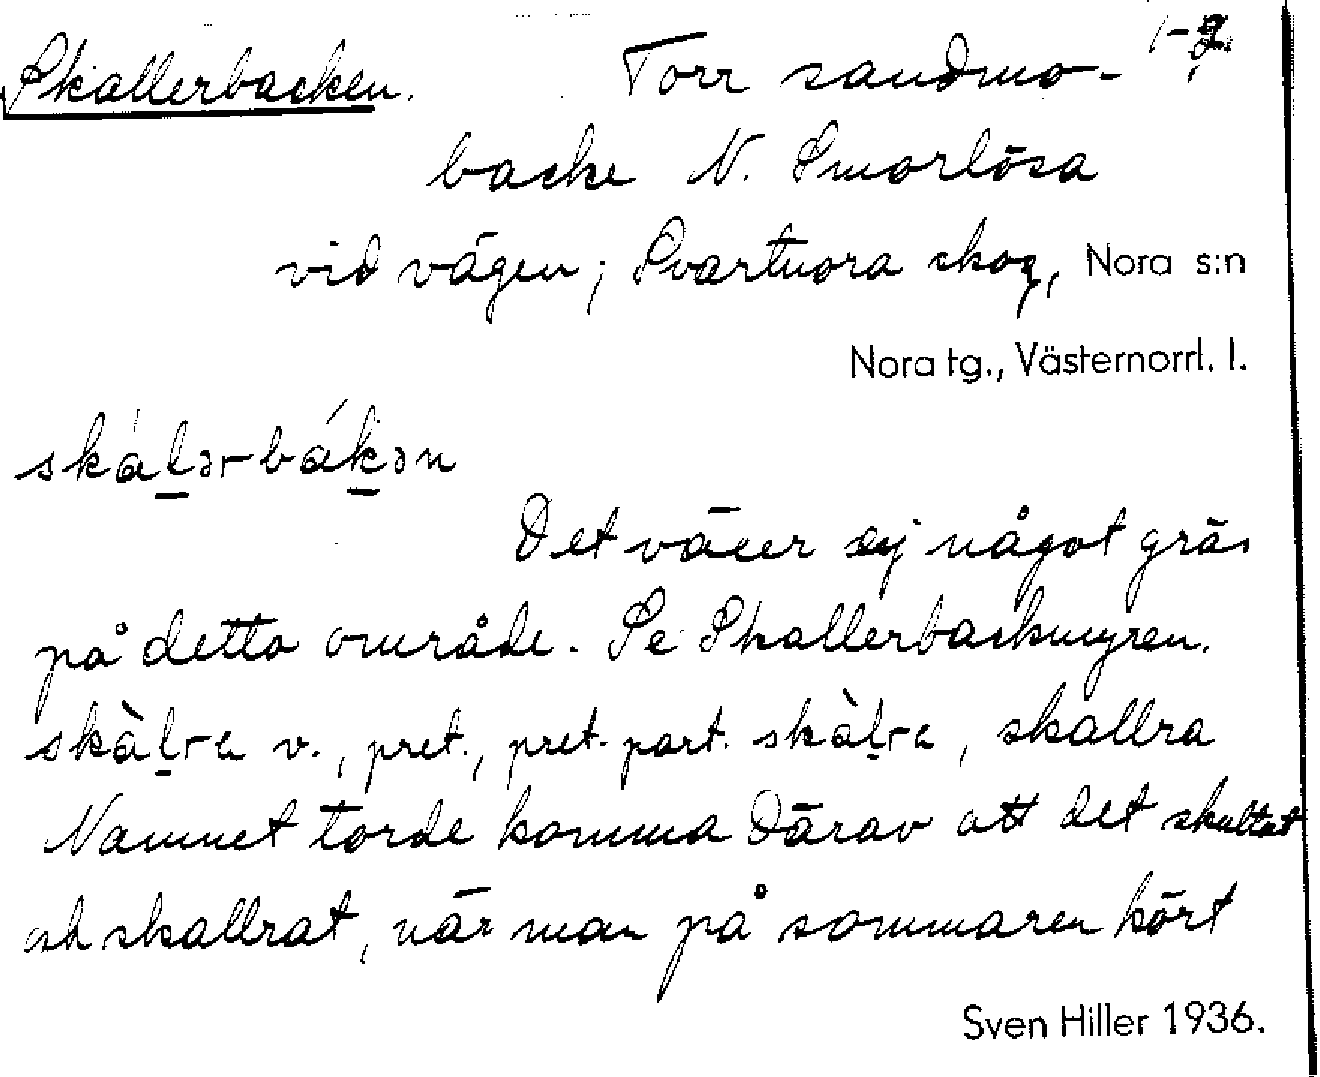 Skallerbacken. Torr sandmo- 1-2
backe N. Smorlösa
vid vägen; Svartnora skog, Nora s:n
Nora tg., Västernorrl. l.
skȧl̲ər-bák̲ən
Det växer ej något gräs
på detta område. Se Skallerbackmyren.
skàl̲ra v., pret., pret. part. skàl̲ra, skallra
Namnet torde komma därav att det skultat
och skallrat, när man på sommaren kört
Sven Hiller 1936.